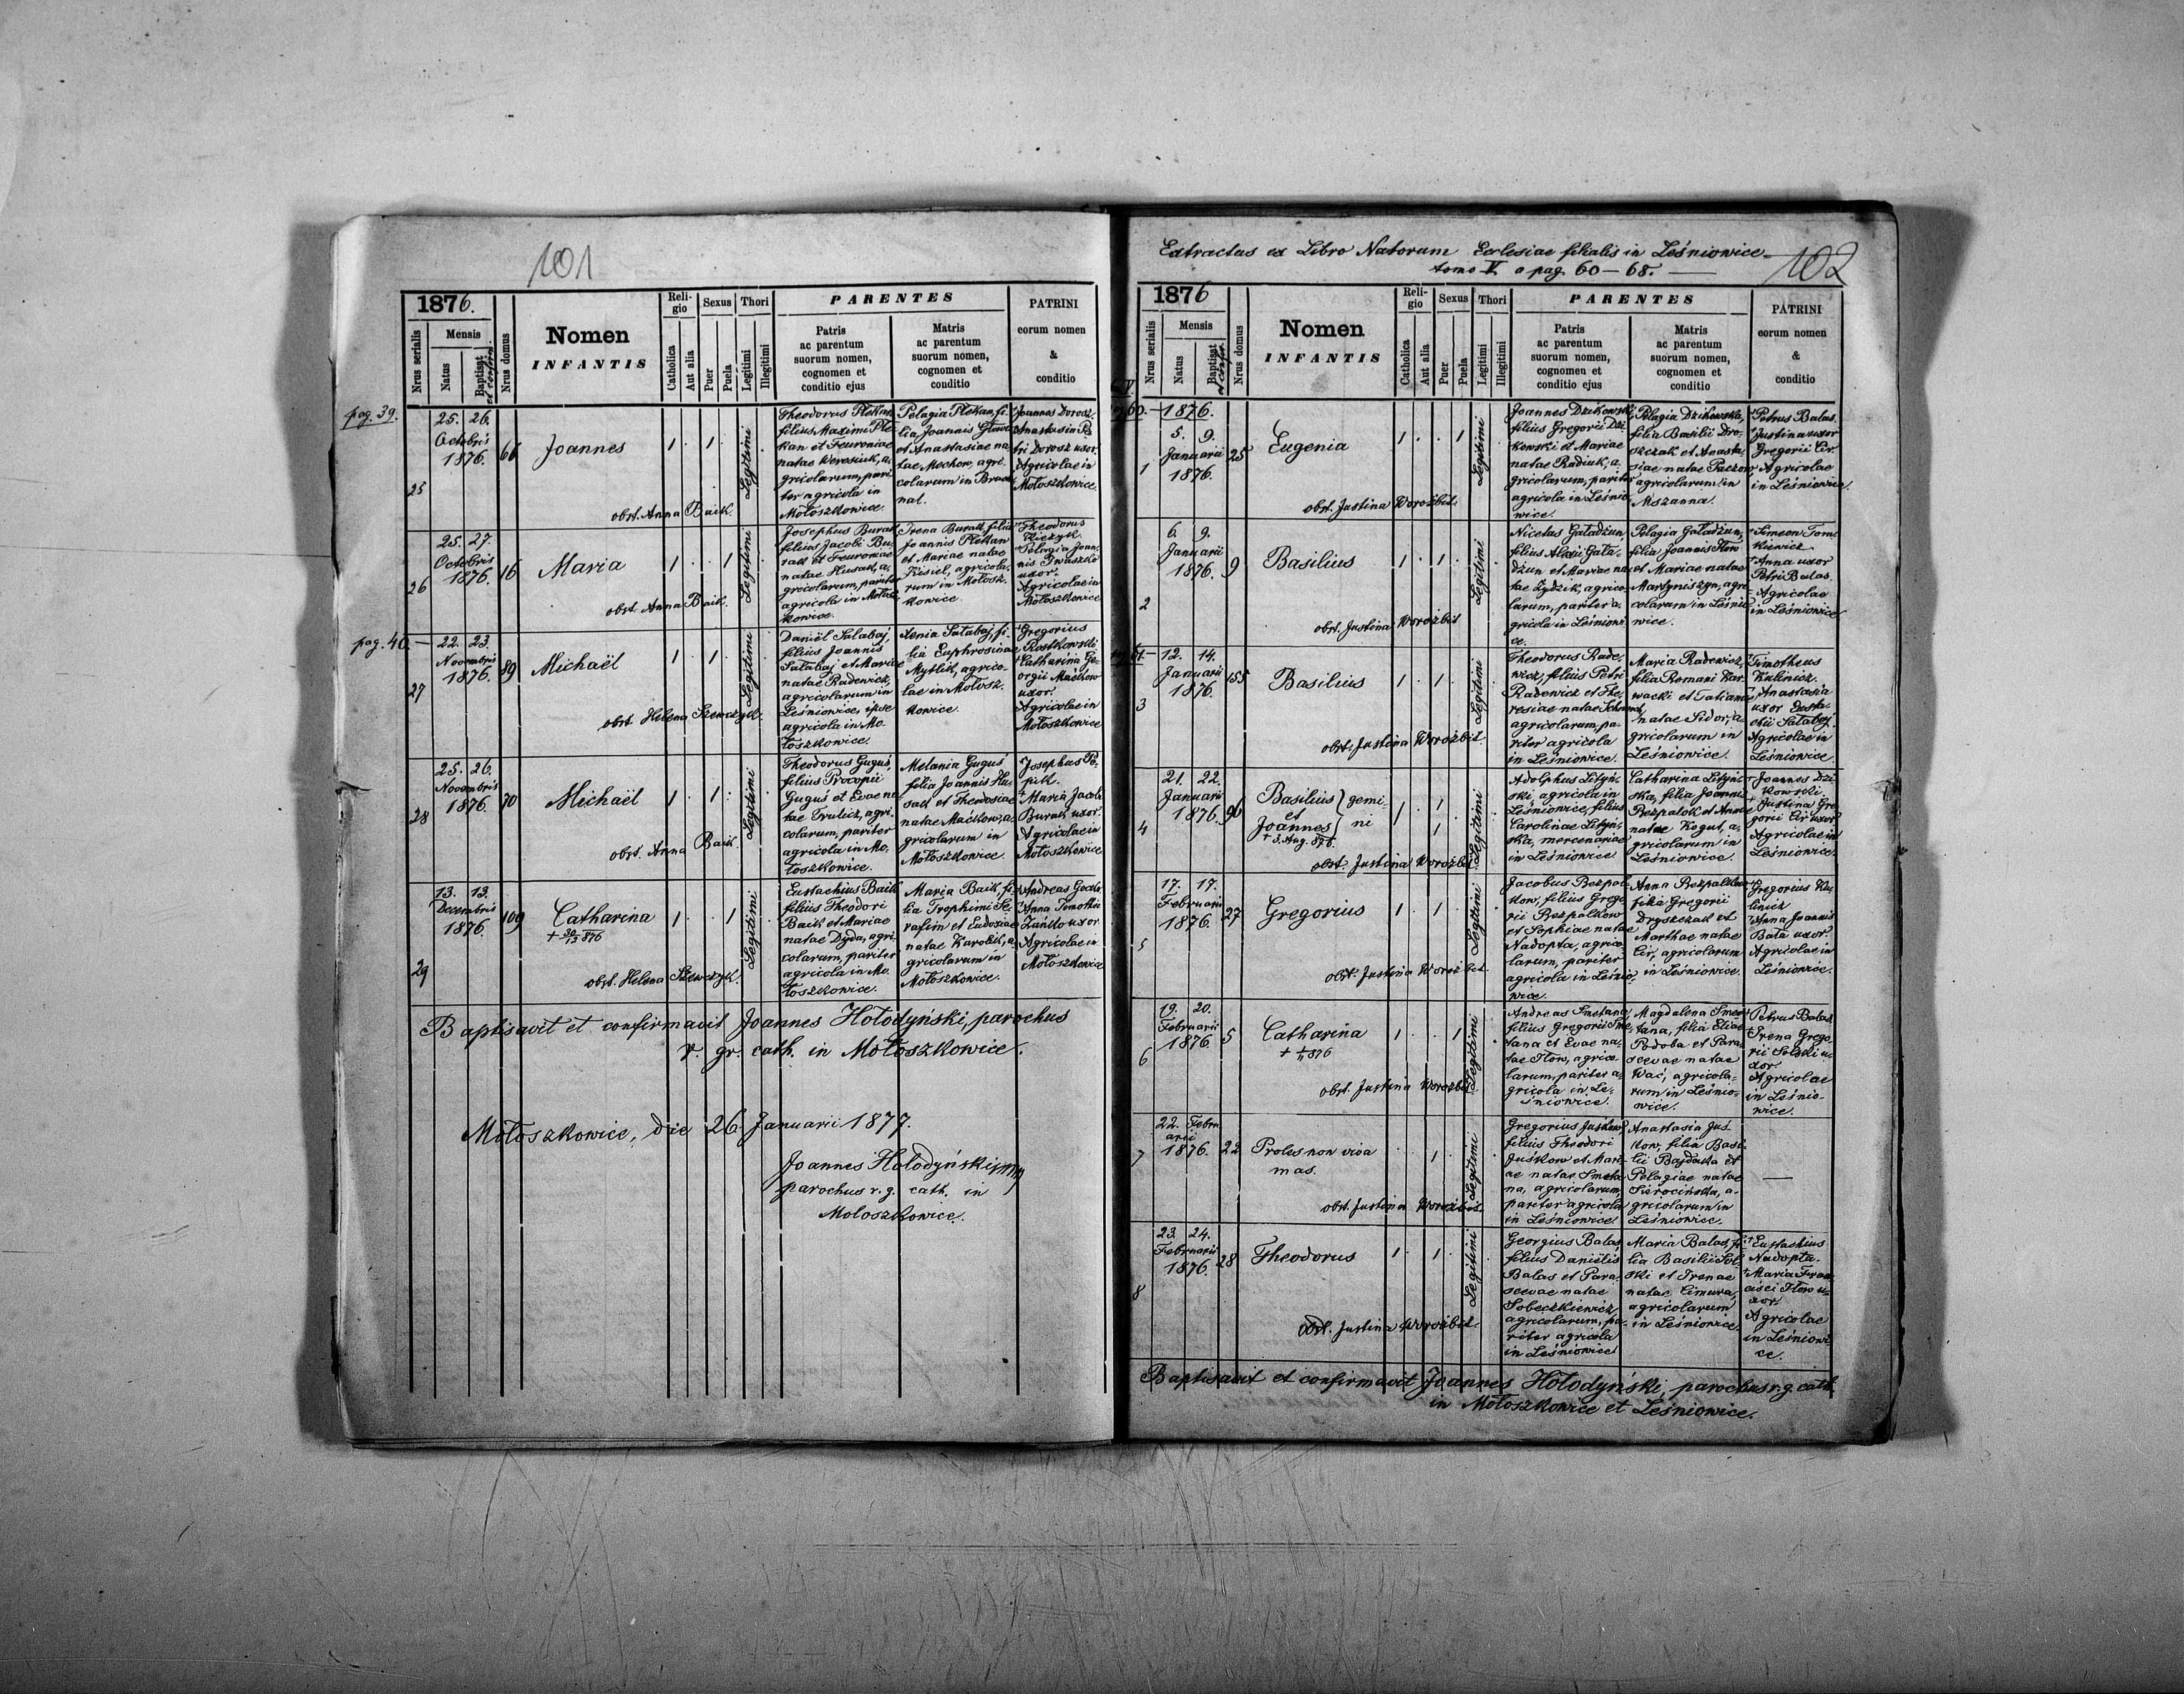 101
1876.
Nrus serialis
Mensis
Natus
Baptisat
et confir.
Nrus domus
Nomen
INFANTIS
Reli-
gio
Catholica
Aut alia
Sexus
Puer
Puela
Thori
Legitimi
Illegitimi
PARENTES
Patris
ac parentum
suorum nomen,
cognomen et
conditio ejus
Matris
ac parentum
suorum nomen,
cognomen et
conditio
PATRINI
eorum nomen
&
conditio
pag. 39.
25
25. 26.
Octobris
1876.
66
Joannes
obst. Anna Baik.
Legitimi
Theodorus Plekan,
filius Maximi Ple
kan et Feuroniae
natae Worosiuk, a,
gricolarum, pari
ter agricola in
Mołoszkowice.
Pelagia Plekan, fi,
lia Joannis
et Anastasiae na
tae Mechow, agri
colarum in
nal.
Joannes Dorosz.
Anastasia Pe
tri Dorosz uxor.
Agricolae in
Mołoszkowice
26
25. 27.
Octobris
1876.
16
Maria
obst. Anna Baik.
Legitimi
Josephus Burak
filius Jacobi Bu-
rak et Feuroniae
natae Husak, a,
gricolarum, pariter
agricola in Mołosz
kowice.
Irena Burak, filia
Joannis Plekan
et Mariae natae
Kisiel, agricola,
rum in Mołosz.
kowice.
Theodorus
Pelagia Joan,
nis Iwaszko
uxor.
Agricolae in
Mołoszkowice
pag. 40.
27
22. 23.
Novembris
1876.
89
Michaël
obst. Helena Szewczyk.
Legitimi
Daniël Sałabaj,
filius Joannis
Sałabaj et Mariae
natae Radewicz,
agricolarum in
Leśniowice, ipse
agricola in Mo,
łoszkowice.
Xenia Sałabaj, fi,
lia Euphrosinae
Mytlik, agrico-
lae in Mołosz.
kowice.
Gregorius
Rostkowski
Catharina Ge-
orgii Maćkow
uxor.
Agricolae in
Mołoszkowice
28
25. 26.
Novembris
1876.
70
Michaël
obst. Anna Baik
Legitimi
Theodorus Guguś,
filius Procopii
Guguś et Evae na
tae Trulicz, agri,
colarum, pariter
agricola in Mo,
łoszkowice.
Melania Guguś
filia Joannis Hu
sak et Theodosiae
natae Maćkow, a,
gricolarum in
Mołoszkowice.
Josephus
Maria Jacobi
Burak uxor.
Agricolae in
Mołoszkowice
29
13. 13.
Decembris
1876.
109
Catharina
+ 30/12 876
obst. Helena Szewczyk.
Legitimi
Eustachius Baik
filius Theodori
Baik et Mariae
natae Dyda, agri
colarum, pariter
agricola in Mo.
łoszkowice.
Maria Baik, fi,
lia Trophimi Se
rafim et Eudoxiae
natae Karolik, a,
gricolarum in
Mołoszkowice.
Andreas
Anna Timothei
uxor
Agricolae in
Mołoszkowice
Baptisavit et confirmavit Joannes Hołodyński, parochus
r. gr. cath. in Mołoszkowice.
Mołoszkowice, die 26 Januarii 1877.
Joannes Hołodyński mp
parochus r. g. cath. in
Mołoszkowice.
Extractus ex Libro Natorum Ecclesiae filialis in Leśniowice
tomo V. a pag. 60 — 68.
102
1876
Nrus serialis
Mensis
Natus
Baptisat
et confir.
Nrus domus
Nomen
INFANTIS
Reli-
gio
Catholica
Aut alia
Sexus
Puer
Puela
Thori
Legitimi
Illegitimi
PARENTES
Patris
ac parentum
suorum nomen,
cognomen et
conditio ejus
Matris
ac parentum
suorum nomen,
cognomen et
conditio
PATRINI
eorum nomen
&
conditio
60. — 1876.
1
5. 9.
Januarii
1876.
25
Eugenia
obst. Justina Worożbit.
Legitimi
Joannes Dzikowski,
filius Gregorii Dzi
kowski et Mariae
natae Radiuk, a,
gricolarum, pariter
agricola in Leśnio,
wice.
Pelagia Dzikowska,
filia Basilii Dro-
szczak et Anasta-
siae natae Paczow
agricolarum in
Mszanna.
Petrus Balas.
Justina uxor
Gregorii Cir.
Agricolae
in Leśniowice.
2
6. 9.
Januarii
1876.
9
Basilius
obst. Justina Worożbit
Legitimi
Nicetas Gaładżun,
filius Alexii Gała-
dżun et Mariae na
tae Zydzik, agrico-
larum, pariter a-
gricola in Leśniowi
ce.
Pelagia Gaładżun,
filia Joannis Ilow
et Mariae natae
Martyniszyn, agri
colarum in Leśnio
wice.
Simeon Tom
kiewicz
Anna uxor
Petri Balas.
Agricolae
in Leśniowice
61 —
3
12. 14.
Januarii
1876.
155
Basilius
obst. Justina Worożbit.
Legitimi
Theodorus Rade,
wicz, filius Petri
Radewicz et The,
resiae natae
agricolarum, pa-
riter agricola
in Leśniowice.
Maria Radewicz,
filia Romani Kar
wacki et Tatianae
natae Sidor, a
gricolarum in
Leśniowice.
Timotheus
Kulinicz.
Anastasia
uxor Eusta-
chii Sałabaj.
Agricolae in
Leśniowice
4
21. 22.
Januarii
1876.
96
Basilius
et
Joannes
+ 3. Aug. 876.
gemi-
ni
obst. Justina Worożbit
Legitimi
Adolphus Litýń-
ski, agricola in
Leśniowice, filius
Carolinae Lityń-
ska, mercenariae
in Leśniowice
Catharina Lityń-
ska, filia Joannis
Bezpalok et Annae
natae Kogut, a,
gricolarum in
Leśniowice.
Joannes Dzi
kowski.
Justina Gre
gorii Cir uxor
Agricolae in
Leśniowice.
5
17. 17.
Februarii
1876.
27
Gregorius
obst. Justina Worożbit.
Legitimi
Jacobus Bezpal-
kow, filius Grego
rii Bezpalkow
et Sophiae natae
Nadopta, agrico
larum, pariter
agricola in Leśnio,
wice.
Anna Bezpalkow
filia Gregorii
Dryszczak et
Marthae natae
Cir, agricolarum
in Leśniowice.
Gregorius Ku
linicz
Anna Joannis
Bała uxor.
Agricolae in
Leśniowice.
6
19. 20.
Februarii
1876.
5
Catharina
obst. Justina Worożbit
Legitimi
Andreas Smetana,
filius Gregorii Sme
tana et Evae na,
tae Ilow, agrico-
larum, pariter a,
gricola in Le-
śniowice.
Magdalena Sme
tana, filia Eliae
Podoba et Para-
scevae natae
Wać, agricola-
rum in Leśnio-
wice.
Petrus Balas
Irena Grego
rii Solski u-
xor
Agricolae
in Leśnio-
wice.
7
22. Febru
arii
1876.
22
Proles non viva
mas.
obst. Justina Worożbit.
Legitimi
Gregorius Juśkow
filius Theodori
Juśkow et Mari-
ae natae Smeta
na, agricolarum,
pariter agricola
in Leśniowice
Anastasia Juś
kow, filia Basi-
lii Bajdała et
Pelagiae natae
Sierocińska, a-
gricolarum in
Leśniowice.
—
8
23. 24.
Februarii
1876.
28
Theodorus
obst. Justina Worożbit.
Legitimi
Georgius Balas,
filius Daniëlis
Balas et Para-
scevae natae
Sobeczkiewicz,
agricolarum, pa-
riter agricola
in Leśniowice
Maria Balas, fi
lia Basilii Sol-
ski et Irenae
natae Cimura,
agricolarum
in Leśniowice,
Eustachius
Nadopta.
Maria Fran
cisci Ilow u-
xor.
Agricolae
in Leśniowi
ce.
Baptisavit et confirmavit Joannes Hołodyński, parochus r. g. cath
in Mołoszkowice et Leśniowice.